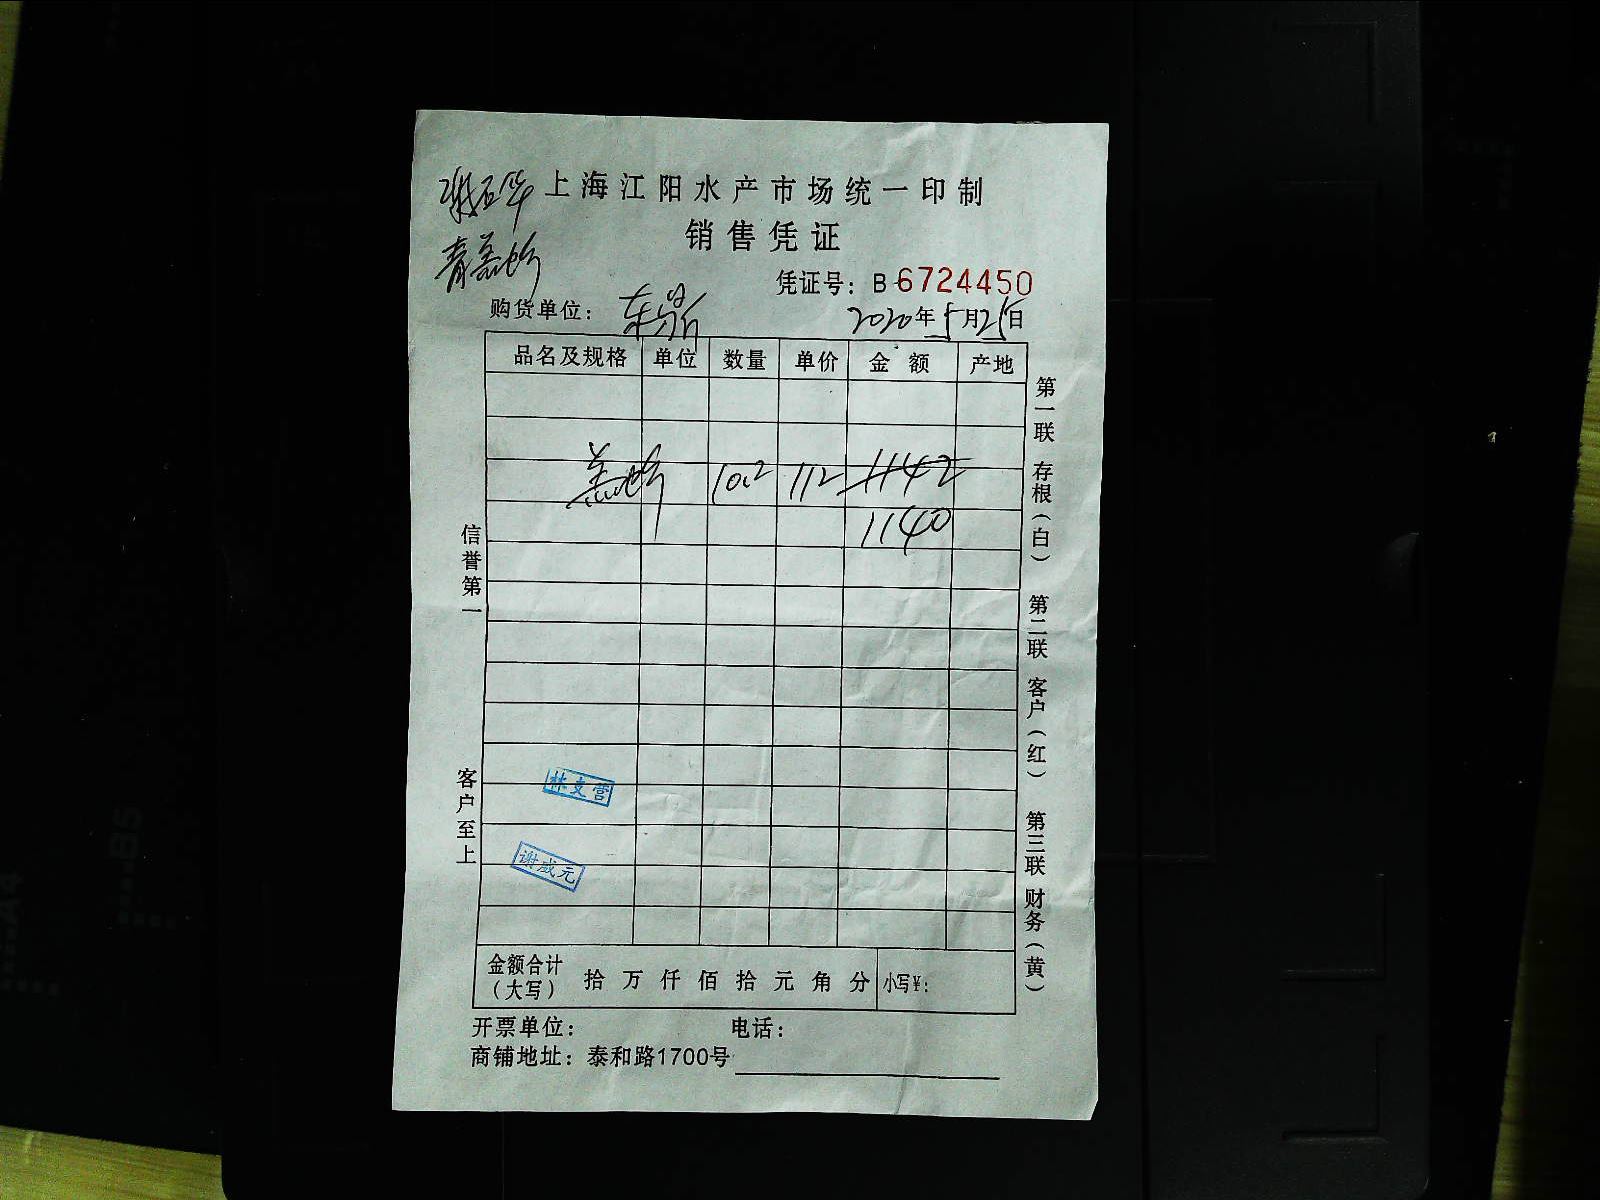 上海江阳水产市场统一印制
销售凭证
凭证号：B-6724450
购货单位：
2020年5月25日
品名及规格 单位 数量 单价 金额 产地
10.2 112 1142
1140
林文营
谢成元
金额合计（大写） 拾万仟佰拾元角分 小写¥：
开票单位： 电话：
商铺地址：泰和路1700号
信誉第一 客户至上
第一联 存根（白） 第二联 客户（红） 第三联 财务（黄）